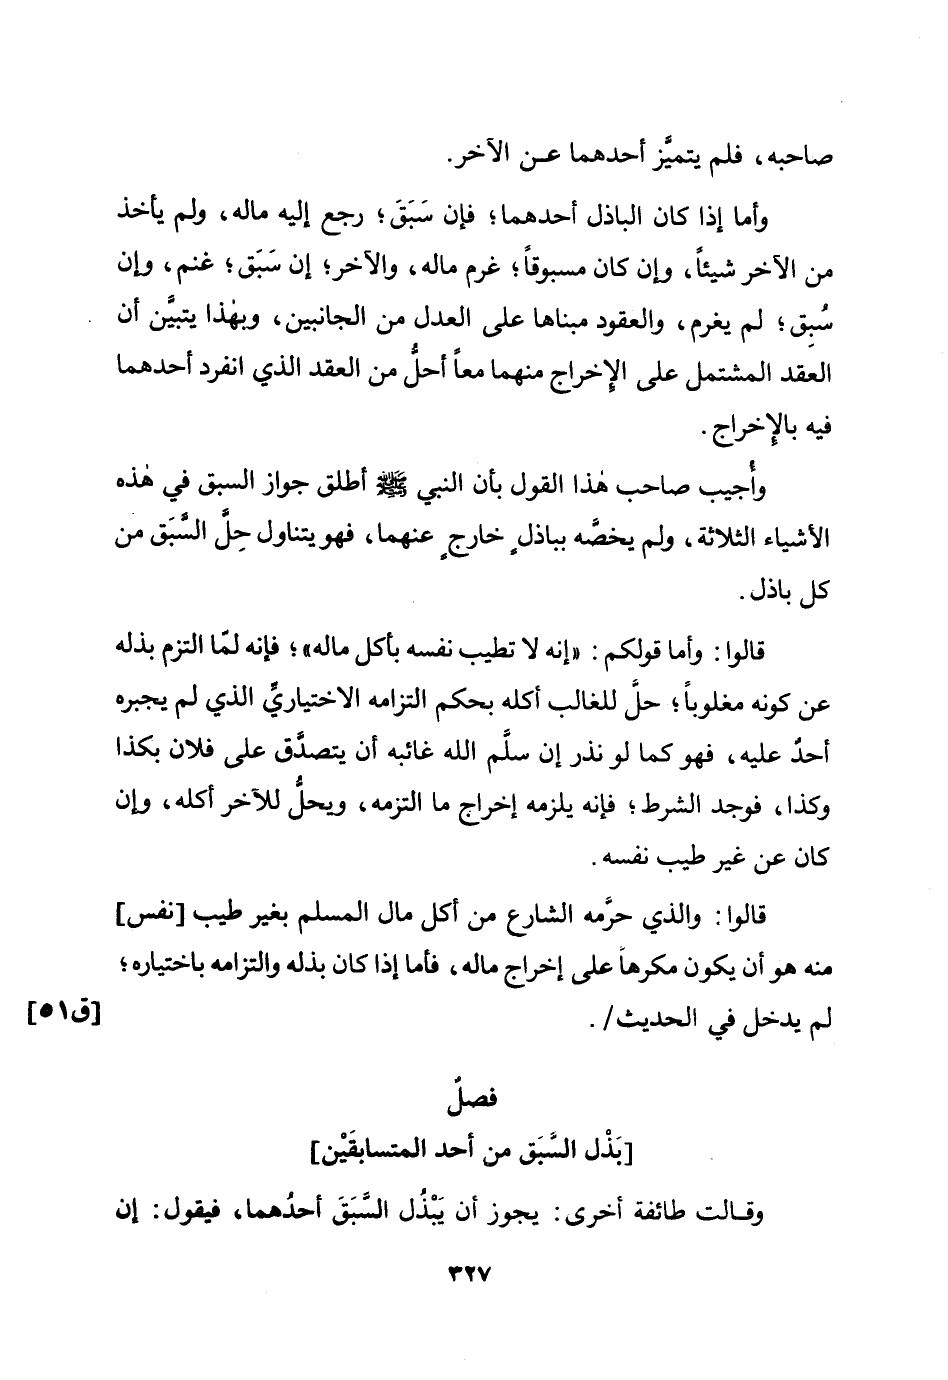 صاحبه، فلم يتميَّز أحدهما عـن الآخر.
وأما إذا كان الباذل أحدهما؛ فإن سَبَقَ؛ رجع إليه ماله، ولم يأخذ
من الآخر شيئاً، وإن كان مسبوقاً؛ غرم ماله، والآخر؛ إن سَبَق؛ غنم، وإن
سُبِق؛ لم يغرم، والعقود مبناها على العدل من الجانبين، وبهٰذا يتبيَّن أن
العقد المشتمل على الإخراج منهما معاً أحلُّ من العقد الذي انفرد أحدهما
فيه بالإخراج.
وأُجيب صاحب هٰذا القول بأن النبي ﷺ أطلق جواز السبق في هٰذه
الأشياء الثلاثة، ولم يخصَّه بباذلٍ خارجٍ عنهما، فهو يتناول حِلَّ السَّبَق من
كل باذل.
قالوا: وأما قولكم: «إنه لا تطيب نفسه بأكل ماله»؛ فإنه لمّا التزم بذله
عن كونه مغلوباً؛ حلَّ للغالب أكله بحكم التزامه الاختياريِّ الذي لم يجبره
أحدٌ عليه، فهو كما لو نذر إن سلَّم الله غائبه أن يتصدَّق على فلان بكذا
وكذا، فوجد الشرط؛ فإنه يلزمه إخراج ما التزمه، ويحلُّ للآخر أكله، وإن
كان عن غير طيب نفسه.
قالوا: والذي حرَّمه الشارع من أكل مال المسلم بغير طيب [نفس]
منه هو أن يكون مكرهاً على إخراج ماله، فأما إذا كان بذله والتزامه باختياره؛
لم يدخل في الحديث/.
[ق٥١]
فصلٌ
[بَذْل السَّبَق من أحد المتسابقَيْن]
وقـالت طائفة أخرى: يجوز أن يَبْذُل السَّبَقَ أحدُهما، فيقول: إن
٣٢٧